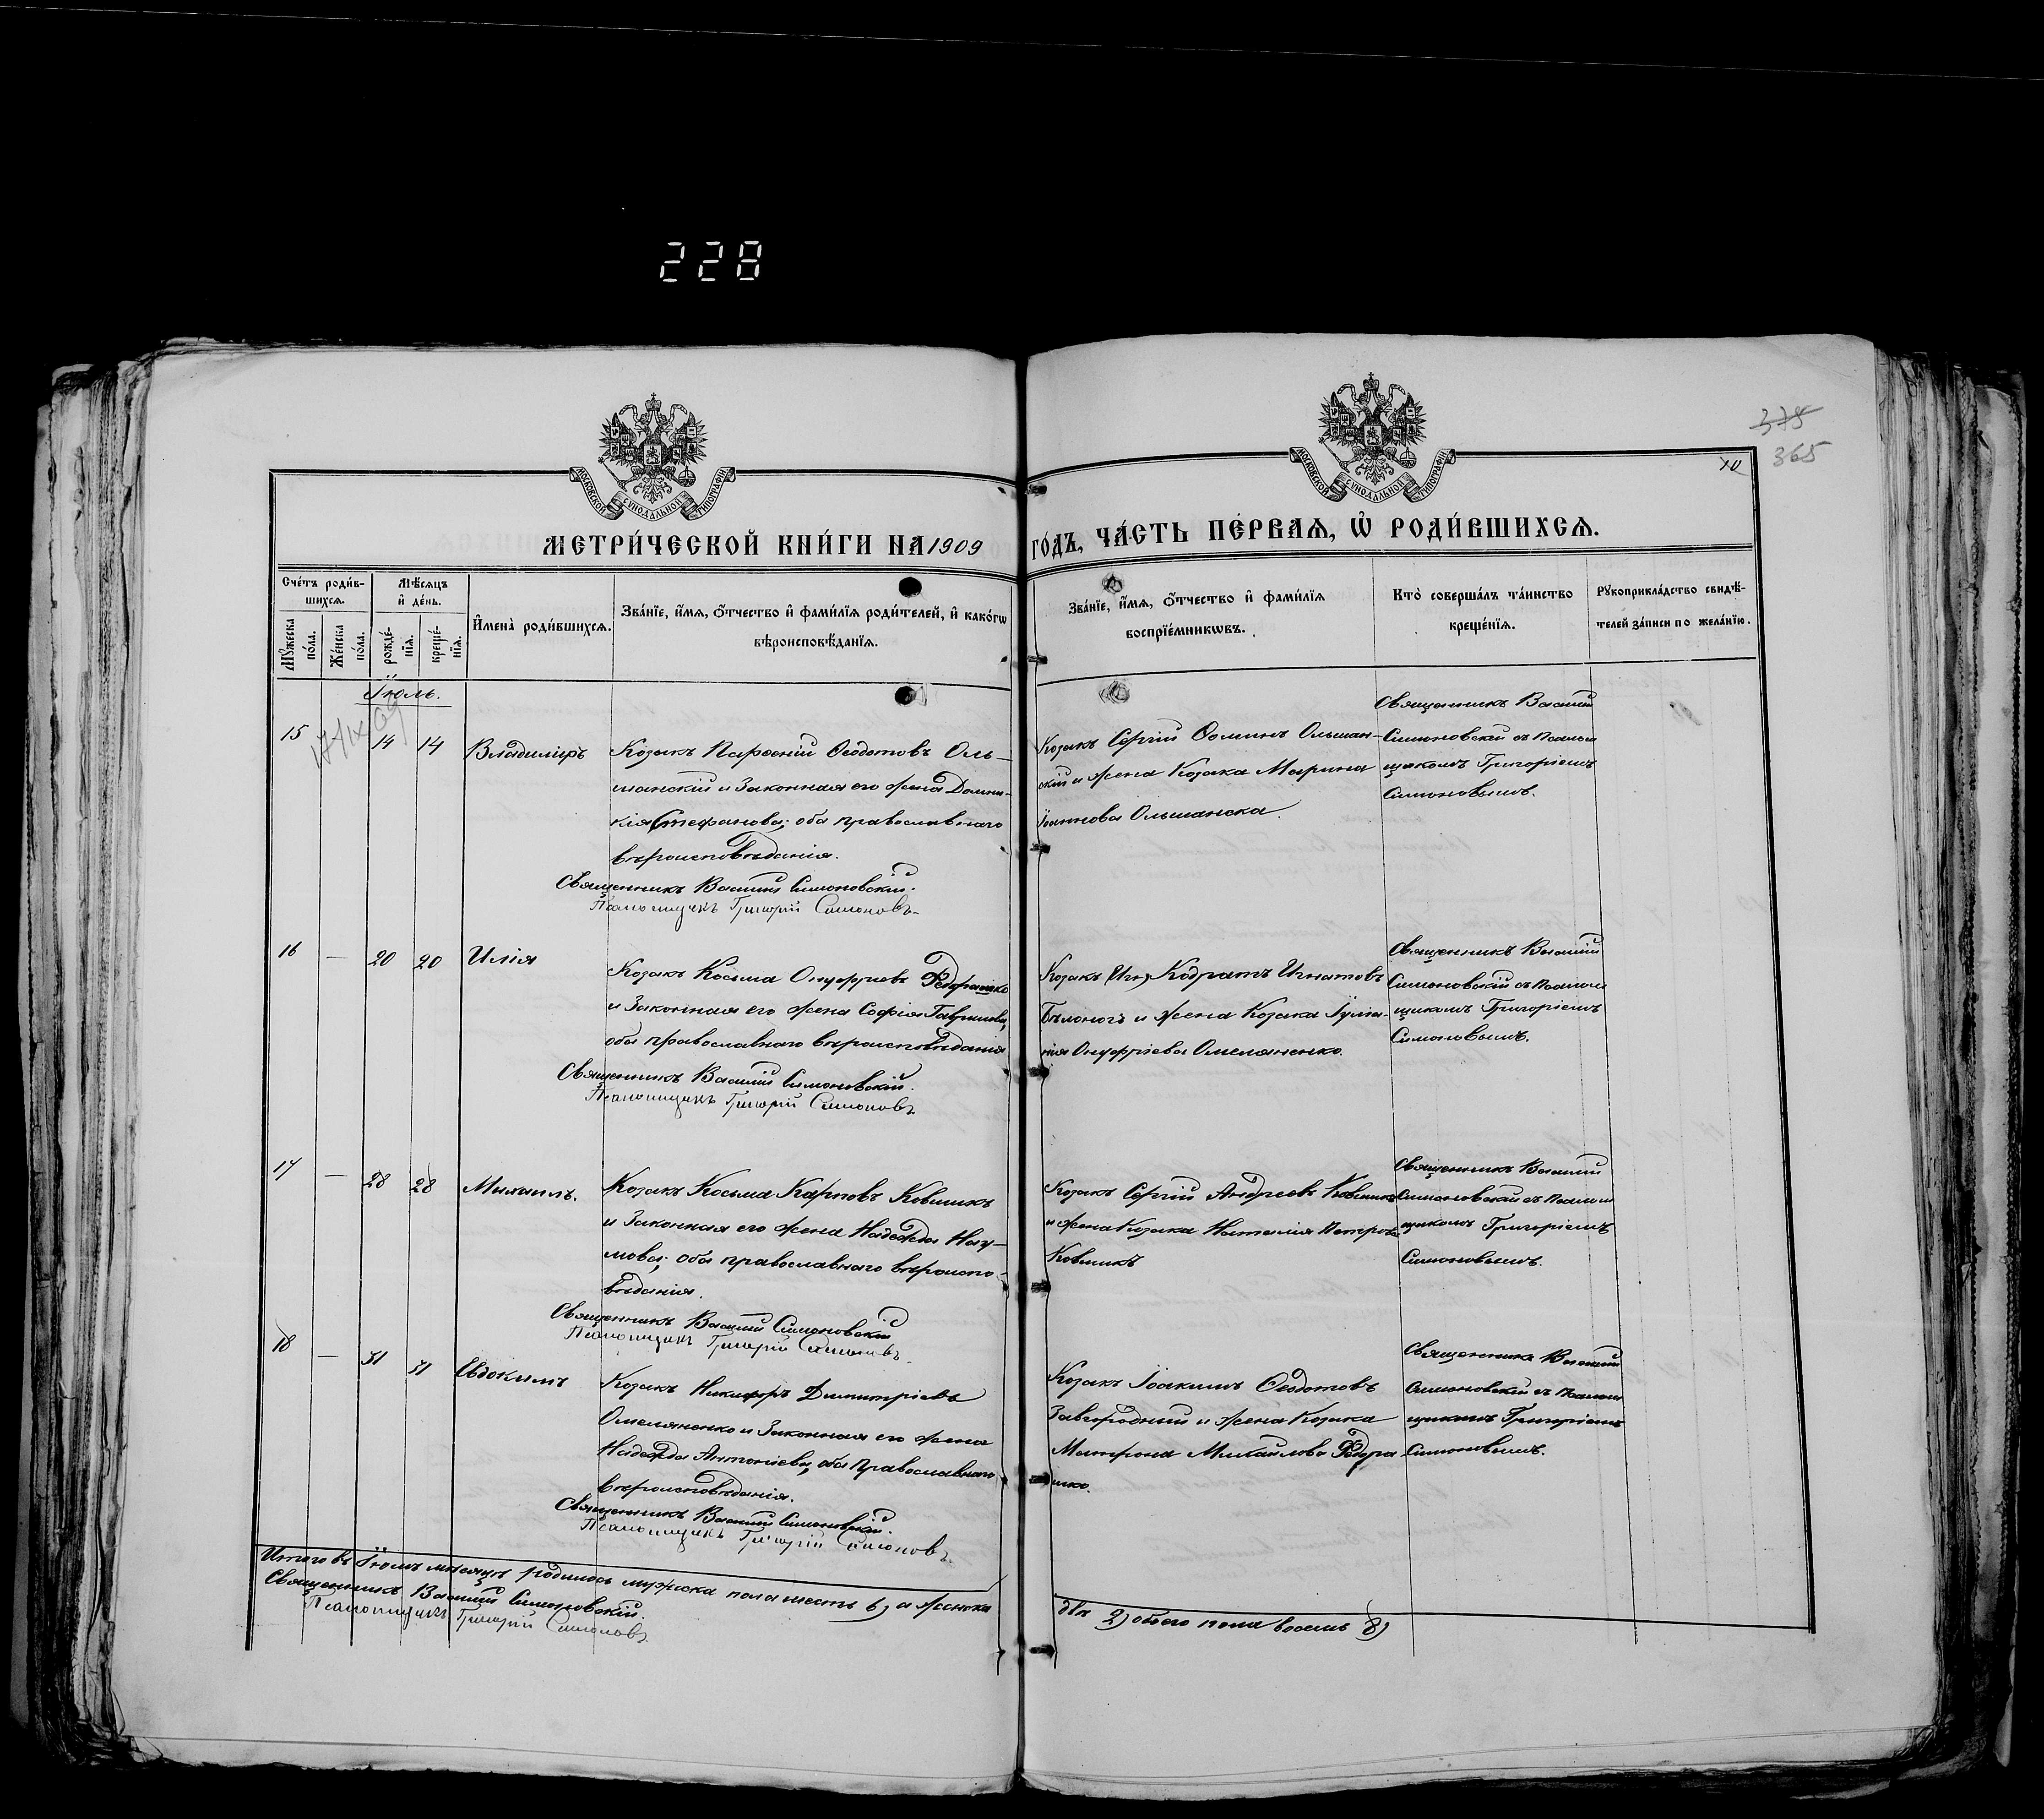 228
375
365
10
МОСКОВСКОЙ СѴНОДАЛЬНОЙ ТИПОГРАФІИ
МОСКОВСКОЙ СѴНОДАЛЬНОЙ ТИПОГРАФІИ
МЕТРИ́ЧЕСКОЙ КНИ́ГИ НА 1909 ГО́ДЪ, ЧА́СТЬ ПЕ́РВАѦ, Ѡ҆ РОДИ́ВШИХСѦ.
Сче́тъ роди́в-
шихсѧ.
Мѣ́сѧцъ
и҆ де́нь.
Мꙋ́жеска
по́ла.
Же́нска
по́ла.
рожде́-
нїѧ.
креще́-
нїѧ.
И҆мена̀ роди́вшихсѧ.
Зва́нїе, и҆́мѧ, ѻ҆́тчество и҆ фами́лїѧ роди́телей, и҆ како́гѡ
вѣроисповѣ́данїѧ.
Зва́нїе, и҆́мѧ, ѻ҆́тчество и҆ фами́лїѧ
воспрїе́мникѡвъ.
Кто̀ соверша́лъ та́инство
креще́нїѧ.
Рꙋкоприкла́дство свидѣ́-
телей за́писи по жела́нїю.
Іюль.
15
14 14
Владиміръ
Козакъ Парѳеній Ѳеодотовъ Оль-
шанскій и законная его жена Домни-
кія Стефанова; оба православнаго
вѣроисповѣданія.
Священникъ Василій Симоновскій.
Псаломщикъ Григорій Симоновъ
Козакъ Сергій Ѳоминъ Ольшан-
скій и жена Козака Марина
Іоаннова Ольшанска.
Священникъ Василій
Симоновскій съ Псалом
щикомъ Григоріемъ
Симоновымъ.
16 — 20 20
Илія
Козакъ Косьма Онуфріевъ Ѳедорашко
и законная его жена Софія Гаврилова,
оба православнаго вѣроисповѣданія
Священникъ Василій Симоновскій.
Псаломщикъ Григорій Симоновъ
Козакъ Кодратъ Игнатовъ
Бѣлоногъ и жена Козака Іуліа-
нія Онуфріева Омеляненко.
Священникъ Василій
Симоновскій съ Псалом
щикомъ Григоріемъ
Симоновымъ.
17 — 28 28
Михаилъ.
Козакъ Косьма Карповъ Ковшикъ
и законная его жена Надежда Нау-
мова; оба православнаго вѣроиспо-
вѣданія.
Священникъ Василій Симоновскій
Псаломщикъ Григорій Симоновъ
Козакъ Сергій Андреевъ Ковшикъ
и жена Козака Наталія Петрова
Ковшикъ
Священникъ Василій
Симоновскій съ Псалом
щикомъ Григоріемъ
Симоновымъ.
18 — 31 31
Евдокимъ
Козакъ Никифоръ Димитріевъ
Омеляненко и законная его жена
Надежда Антоніева, оба православнаго
вѣроисповѣданія.
Священникъ Василій Симоновскій.
Псаломщикъ Григорій Симоновъ
Козакъ Іоакимъ Ѳеодотовъ
Завгородный и жена Козака
Матрона Михаилова Ѳедора
шко.
Священникъ Василій
Симоновскій съ Псалом
щикомъ Григоріемъ
Симоновымъ.
Итого въ Іюлѣ мѣсяцѣ родилось мужска пола шесть 6) а женска
двѣ 2) обоего пола восемь 8)
Священникъ Василій Симоновскій.
Псаломщикъ Григорій Симоновъ